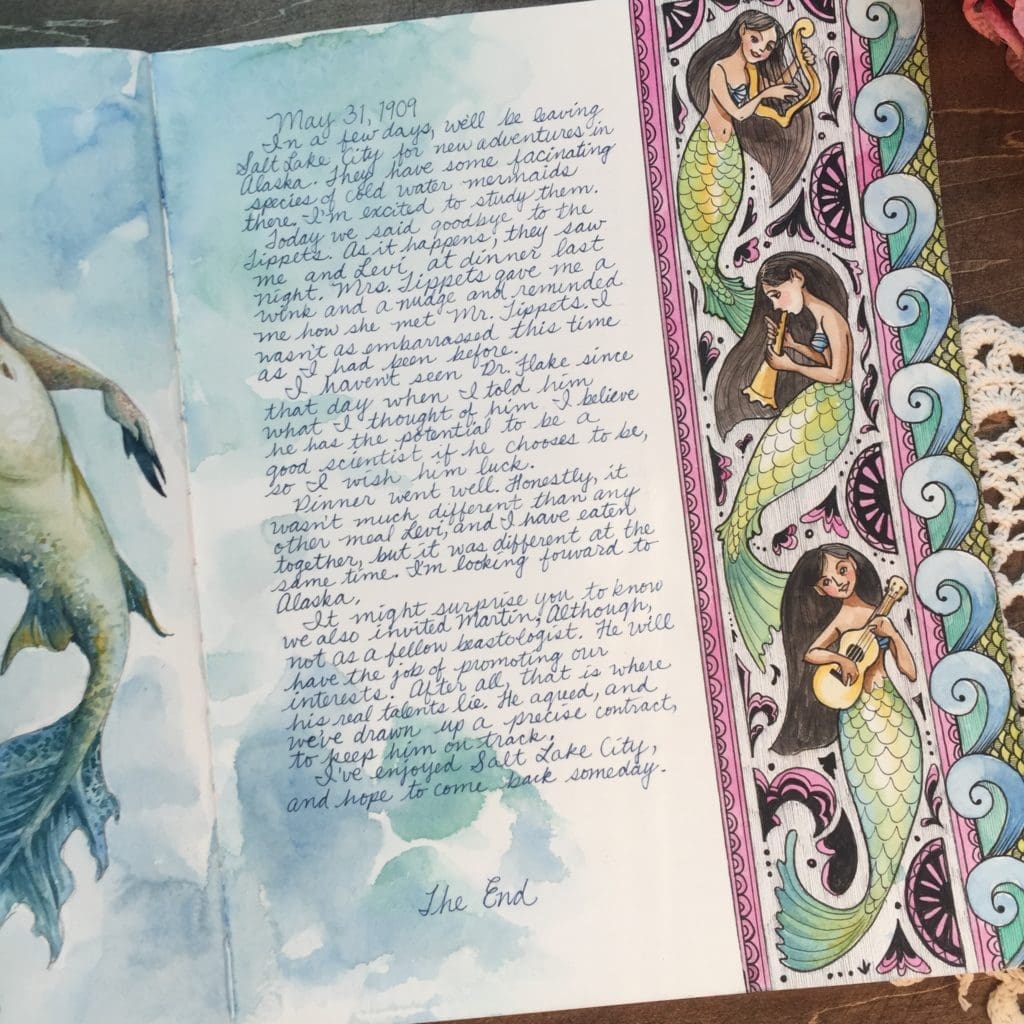 May 31, 1909
In a few days, we'll be leaving
Salt Lake City for new adventures in
Alaska. They have some facinating
species of cold water mermaids
there. I'm excited to study them.
Today we said goodbye to the
Tippets. As it happens, they saw
me and Levi, at dinner last
night. Mrs. Tippets gave me a
wink and a nudge and reminded
me how she met Mr. Tippets. I
wasn't as embarrassed this time
as I had been before.
I haven't seen Dr. Flake since
that day when I told him
what I thought of him. I believe
he has the potential to be a
good scientist if he chooses to be,
so I wish him luck.
Dinner went well. Honestly, it
wasn't much different than any
other meal Levi, and I have eaten
together, but it was different at the
same time. I'm looking foward to
Alaska.
It might surprise you to know
we also invited Martin. Although,
not as a fellow beastologist. He will
have the job of promoting our
interests. After all, that is where
his real talents lie. He agreed, and
we've drawn up a precise contract,
to keep him on track.
I've enjoyed Salt Lake City,
and hope to come back someday.
The End